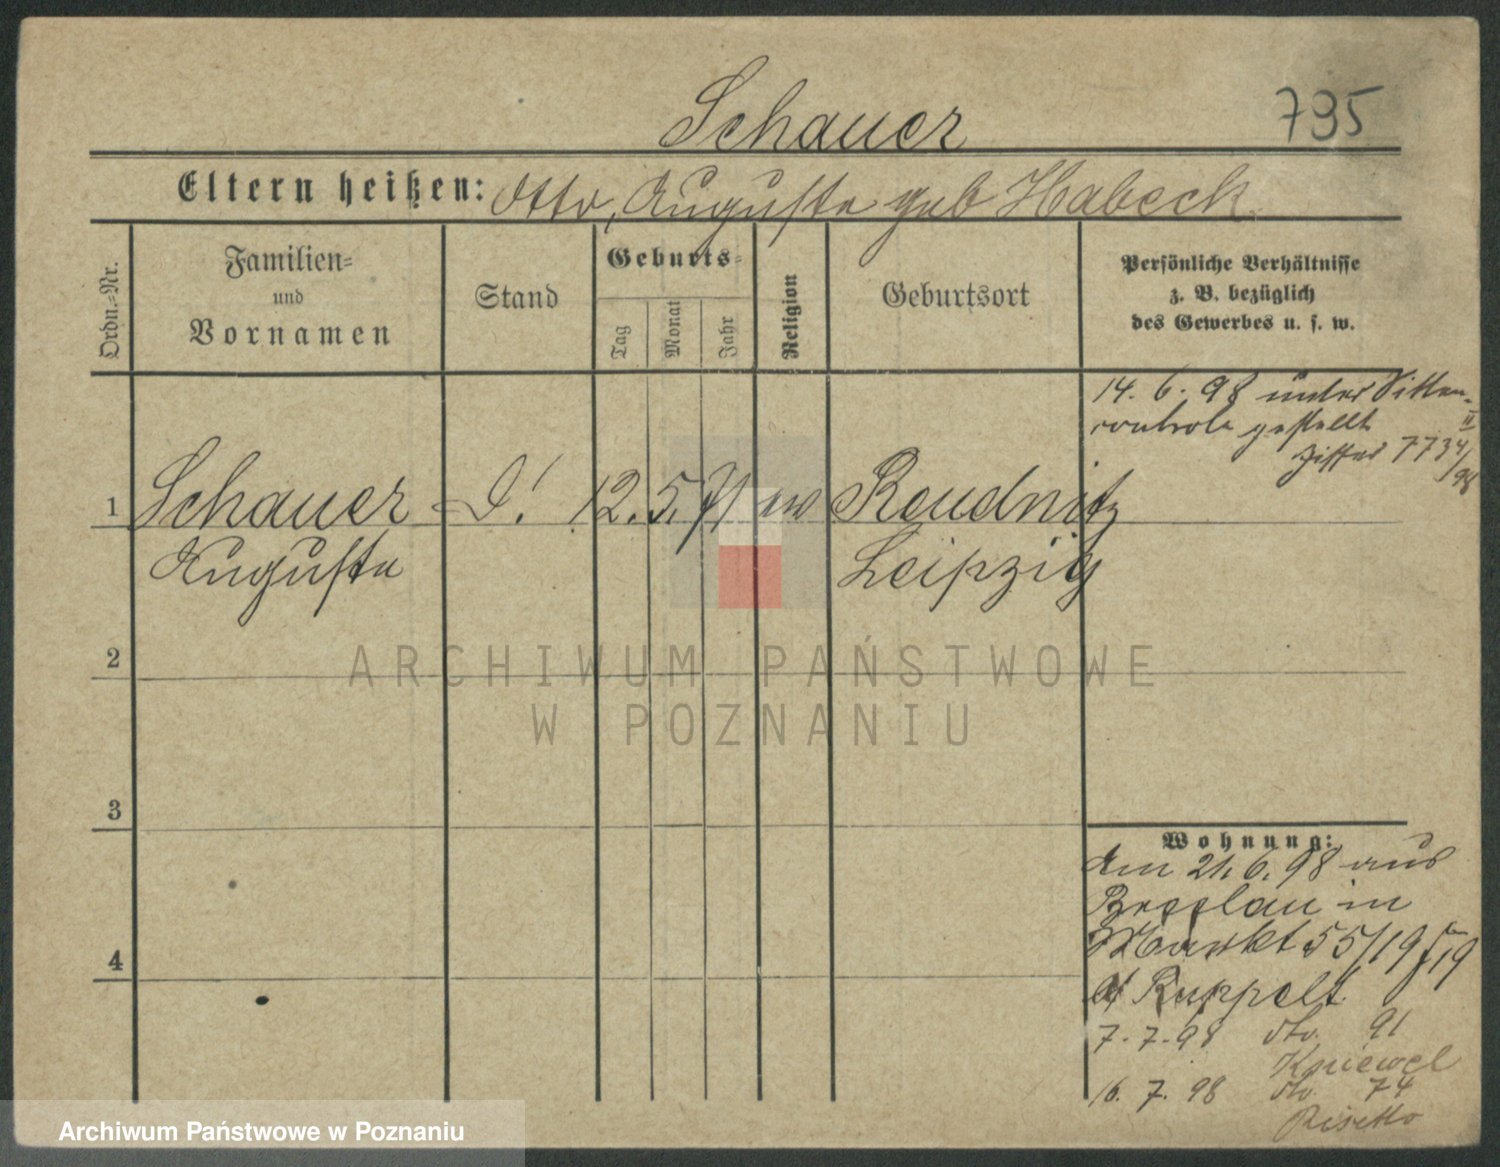 Schauer
795
Eltern heißen: Otto, Auguste geb Habeck
Ordn.-Nr.
Familien-
und
Vornamen
Stand
Geburts-
Tag
Monat
Jahr
Religion
Geburtsort
Persönliche Verhältnisse
z. B. bezüglich
des Gewerbes u. s. w.
14. 6. 98 unter Sitten-
controle gestellt
Ziffer 7734/98
II
1 Schauer 12. 5. 71 ev Reudnitz
Auguste Leipzig
2
ARCHIWUM PAŃSTWOWE
W POZNANIU
3
4
Wohnung:
Am 21. 6. 98 aus
Breslau in
Markt 55/19
Ruppelt
7. 7. 98 dto. 91
Kniewel
16. 7. 98 dto. 74
Archiwum Państwowe w Poznaniu